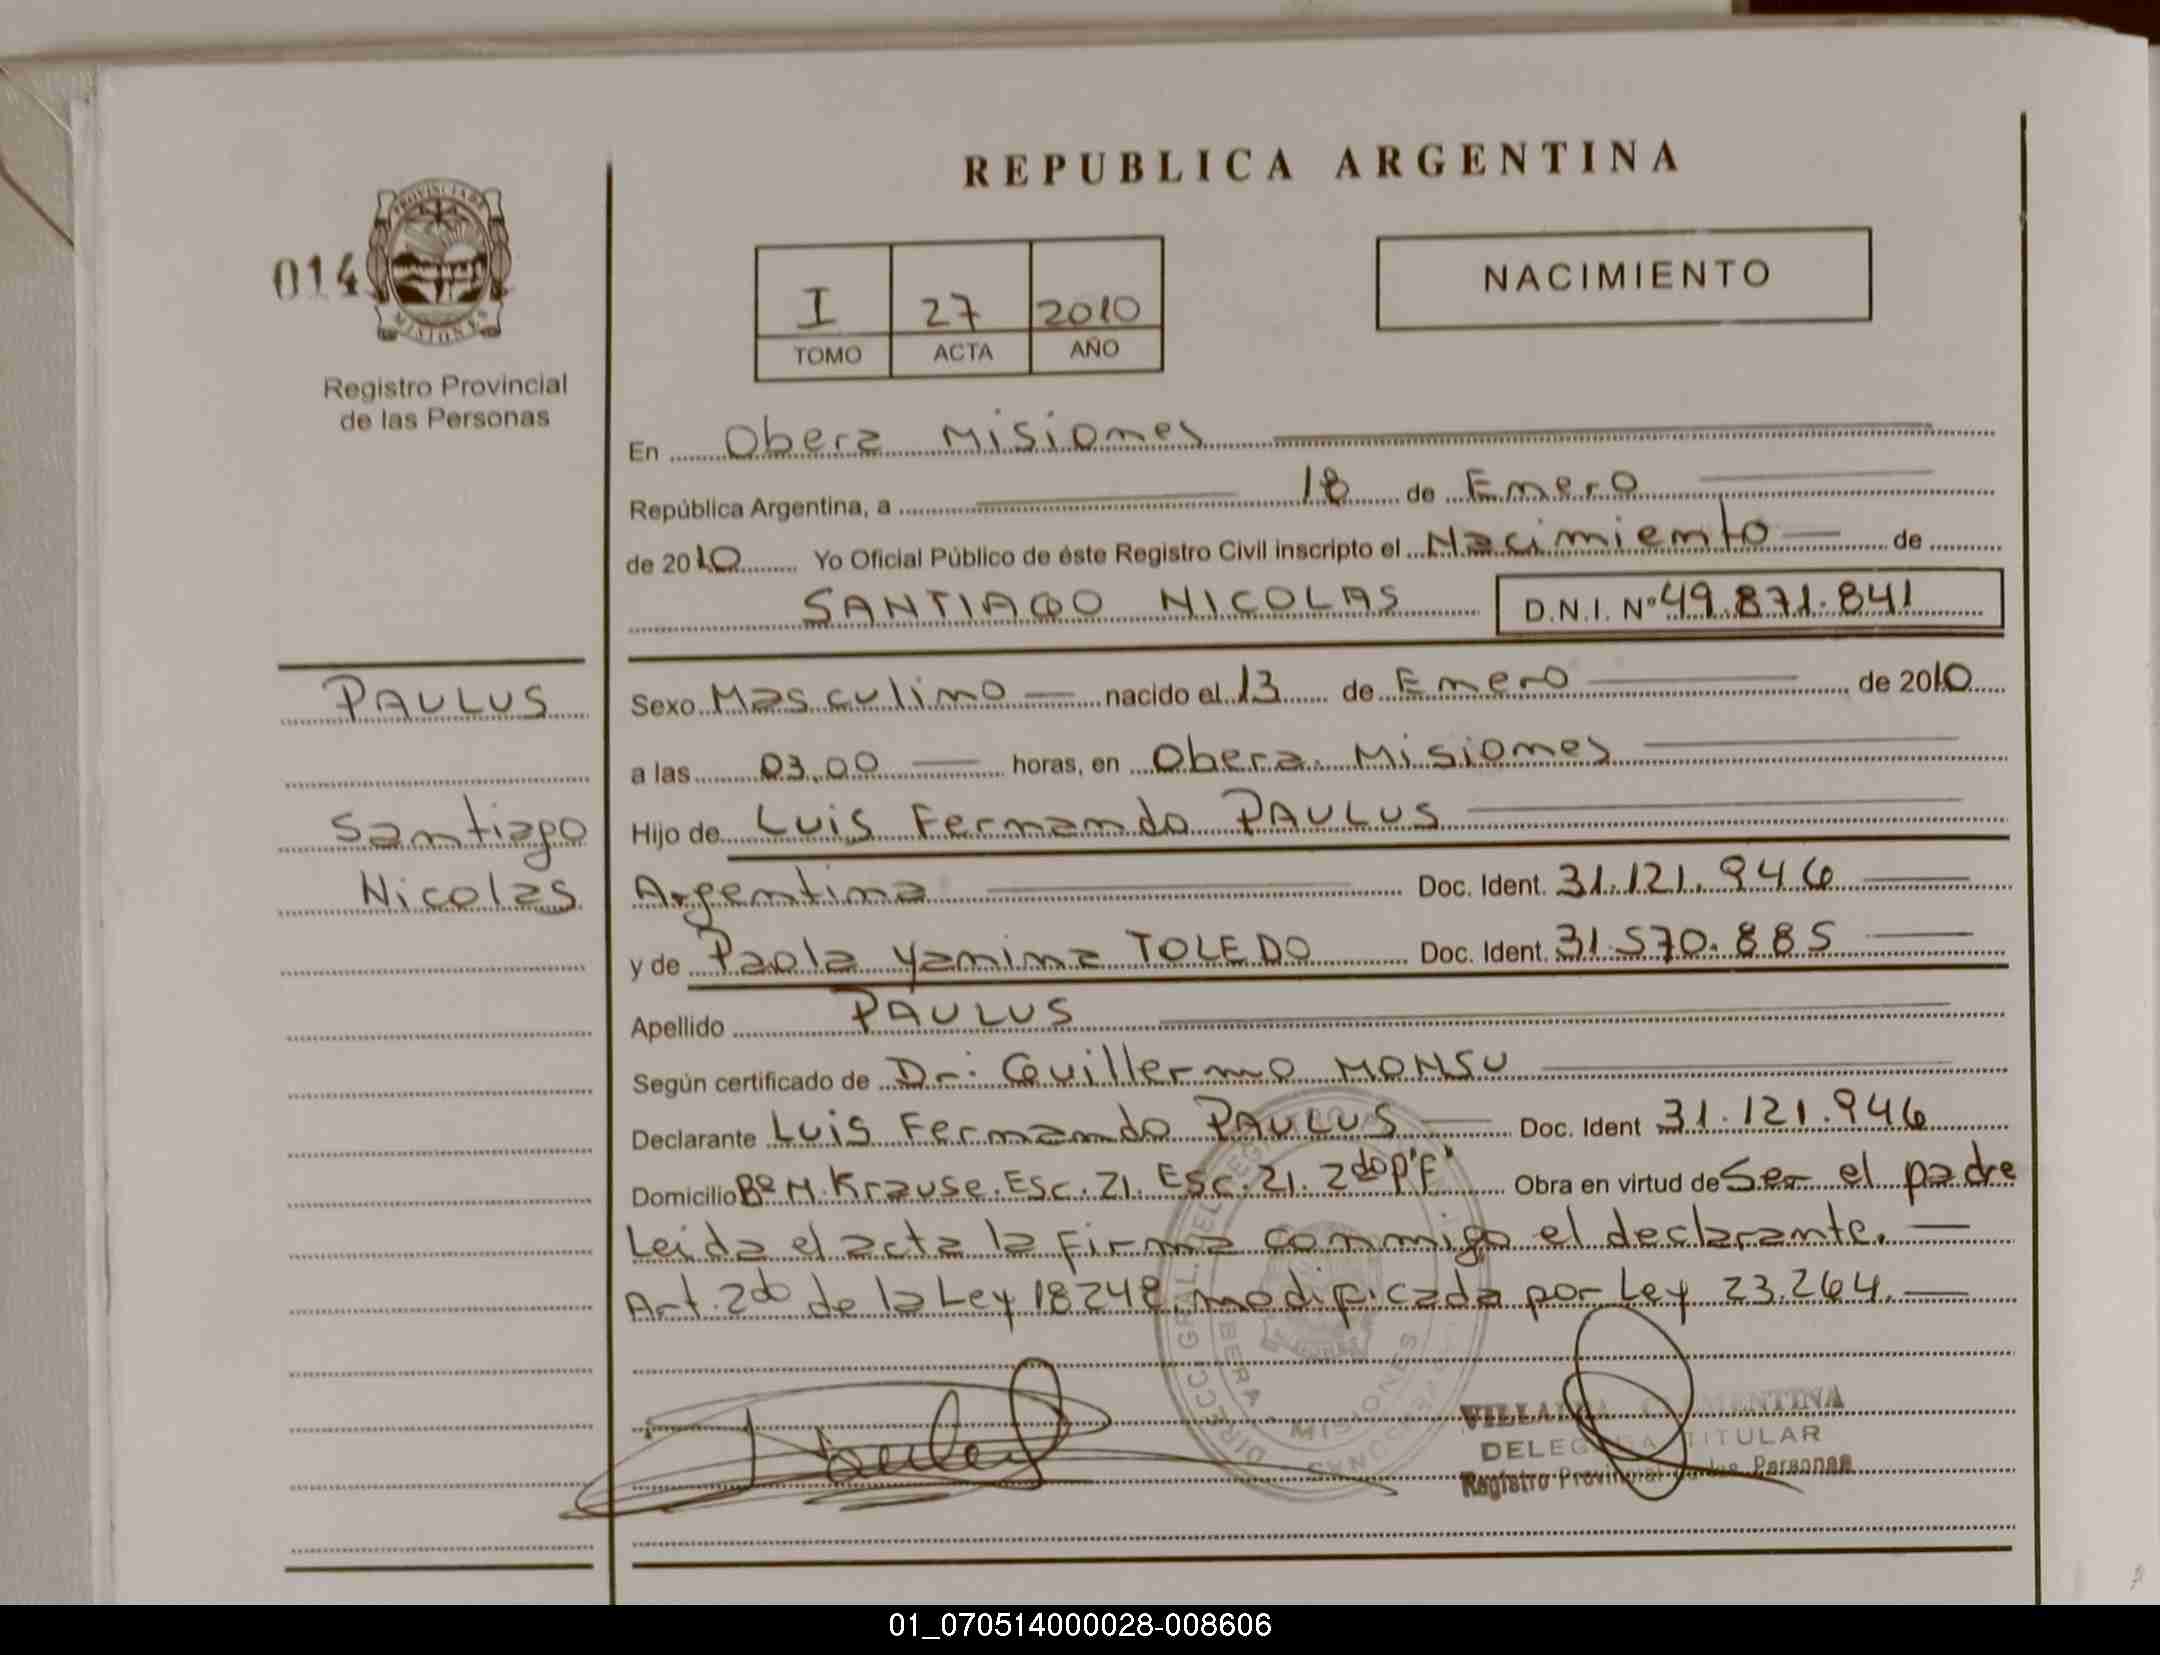 REPUBLICA ARGENTINA
014
PROVINCIA DE
MISIONES
Registro Provincial
de las Personas
I 27 2010
TOMO ACTA AÑO
NACIMIENTO
En Obera Misiones
República Argentina, a 18 de Enero
de 2010 Yo Oficial Público de éste Registro Civil inscripto el Nacimiento de
SANTIAGO NICOLAS D.N.I. Nº 49.871.841
PAULUS
Santiago
Nicolas
Sexo Masculino nacido el 13 de Enero de 2010
a las 03.00 horas, en Obera. Misiones
Hijo de Luis Fernando PAULUS
Argentina Doc. Ident. 31.121.946
y de Paola Yanina TOLEDO Doc. Ident. 31.570.885
Apellido PAULUS
Según certificado de Dr: Guillermo MONSU
Declarante Luis Fernando PAULUS Doc. Ident 31.121.946
Domicilio Bº M. Krause. Esc. 21. Esc. 21. 2do P"F" Obra en virtud de Ser el padre
Leida el acta la firma conmigo el declarante.
Art. 2do de la Ley 18248, modificada por Ley 23.264.
DIRECC. GRAL. DEL REG
OBERA - MISIONES
DELEGADA TITULAR
Registro Provincial de las Personas
01_070514000028-008606